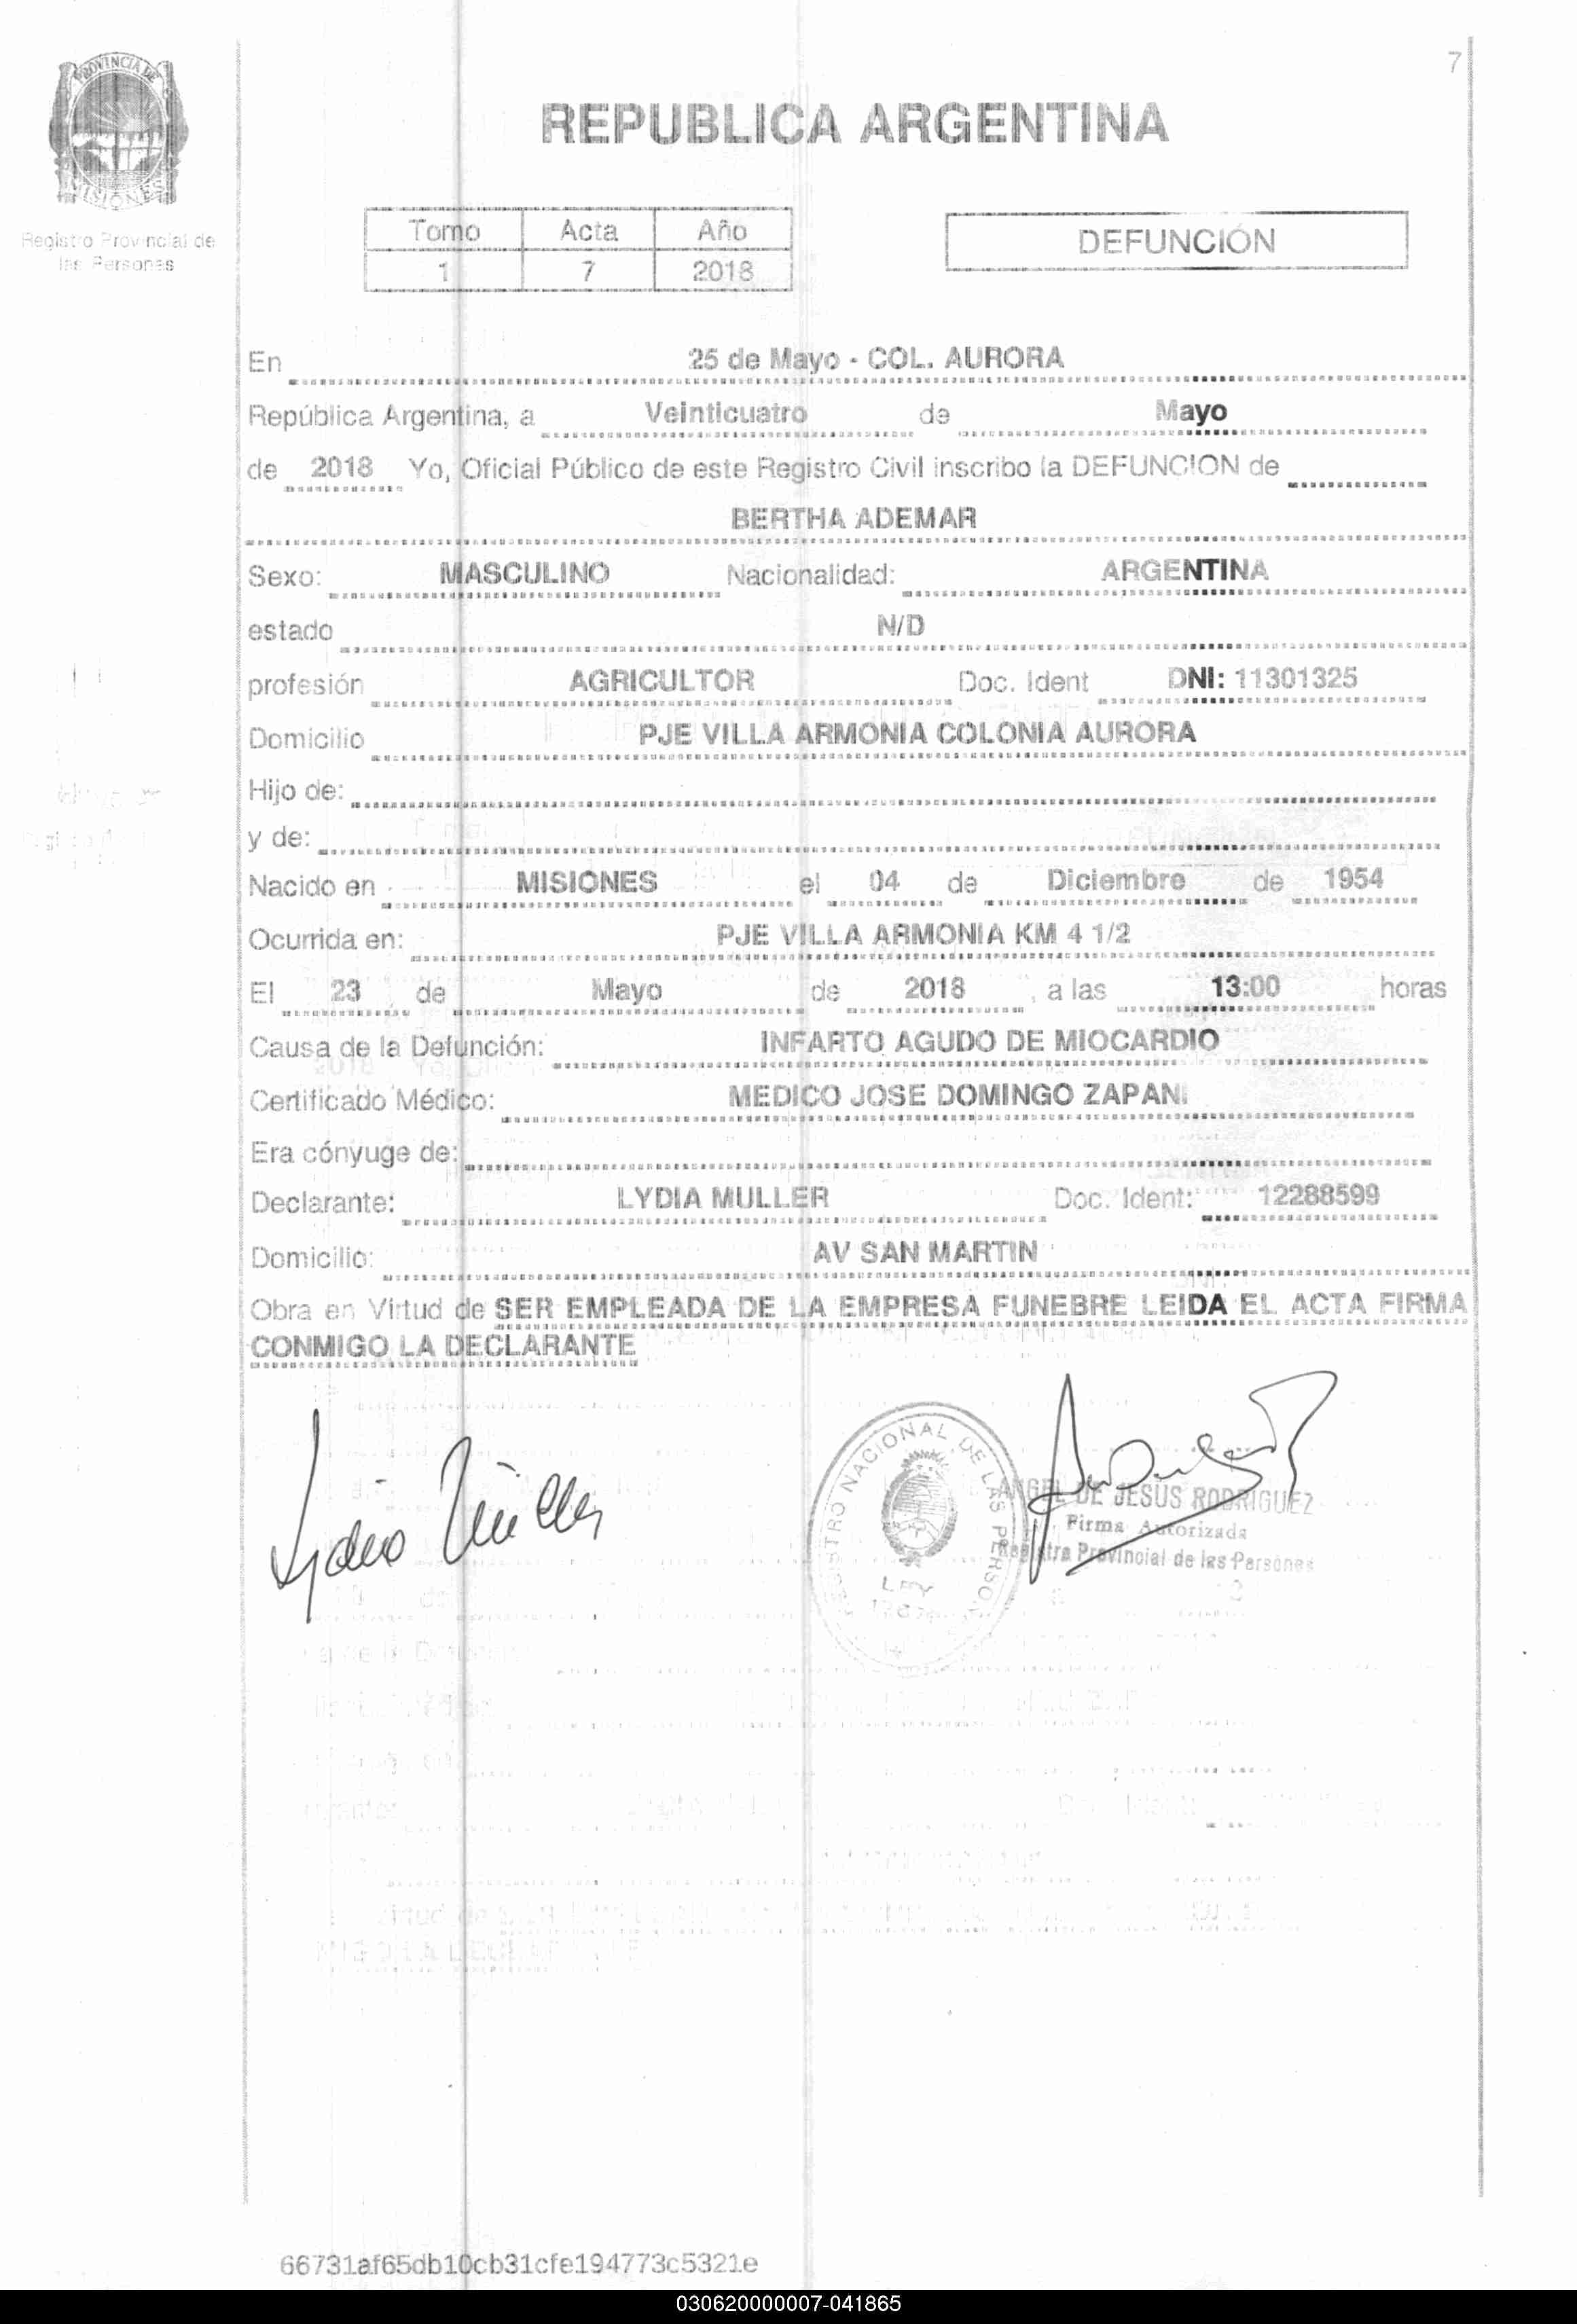 7
PROVINCIA DE
MISIONES
REPUBLICA ARGENTINA
Registro Provincial de
las Personas
Tomo Acta Año
1 7 2018
DEFUNCIÓN
En 25 de Mayo - COL. AURORA
República Argentina, a Veinticuatro de Mayo
de 2018 Yo, Oficial Público de este Registro Civil inscribo la DEFUNCION de
BERTHA ADEMAR
Sexo: MASCULINO Nacionalidad: ARGENTINA
estado N/D
profesión AGRICULTOR Doc. Ident DNI: 11301325
Domicilio PJE VILLA ARMONIA COLONIA AURORA
Hijo de:
y de:
Nacido en MISIONES el 04 de Diciembre de 1954
Ocurrida en: PJE VILLA ARMONIA KM 4 1/2
El 23 de Mayo de 2018 , a las 13:00 horas
Causa de la Defunción: INFARTO AGUDO DE MIOCARDIO
Certificado Médico: MEDICO JOSE DOMINGO ZAPANI
Era cónyuge de:
Declarante: LYDIA MULLER Doc. Ident: 12288599
Domicilio: AV SAN MARTIN
Obra en Virtud de SER EMPLEADA DE LA EMPRESA FUNEBRE LEIDA EL ACTA FIRMA
CONMIGO LA DECLARANTE
Lydia Müller
REGISTRO NACIONAL DE LAS PERSONAS
LEY
ANGEL DE JESUS RODRIGUEZ
Firma Autorizada
Registro Provincial de las Personas
66731af65db10cb31cfe194773c5321e
030620000007-041865